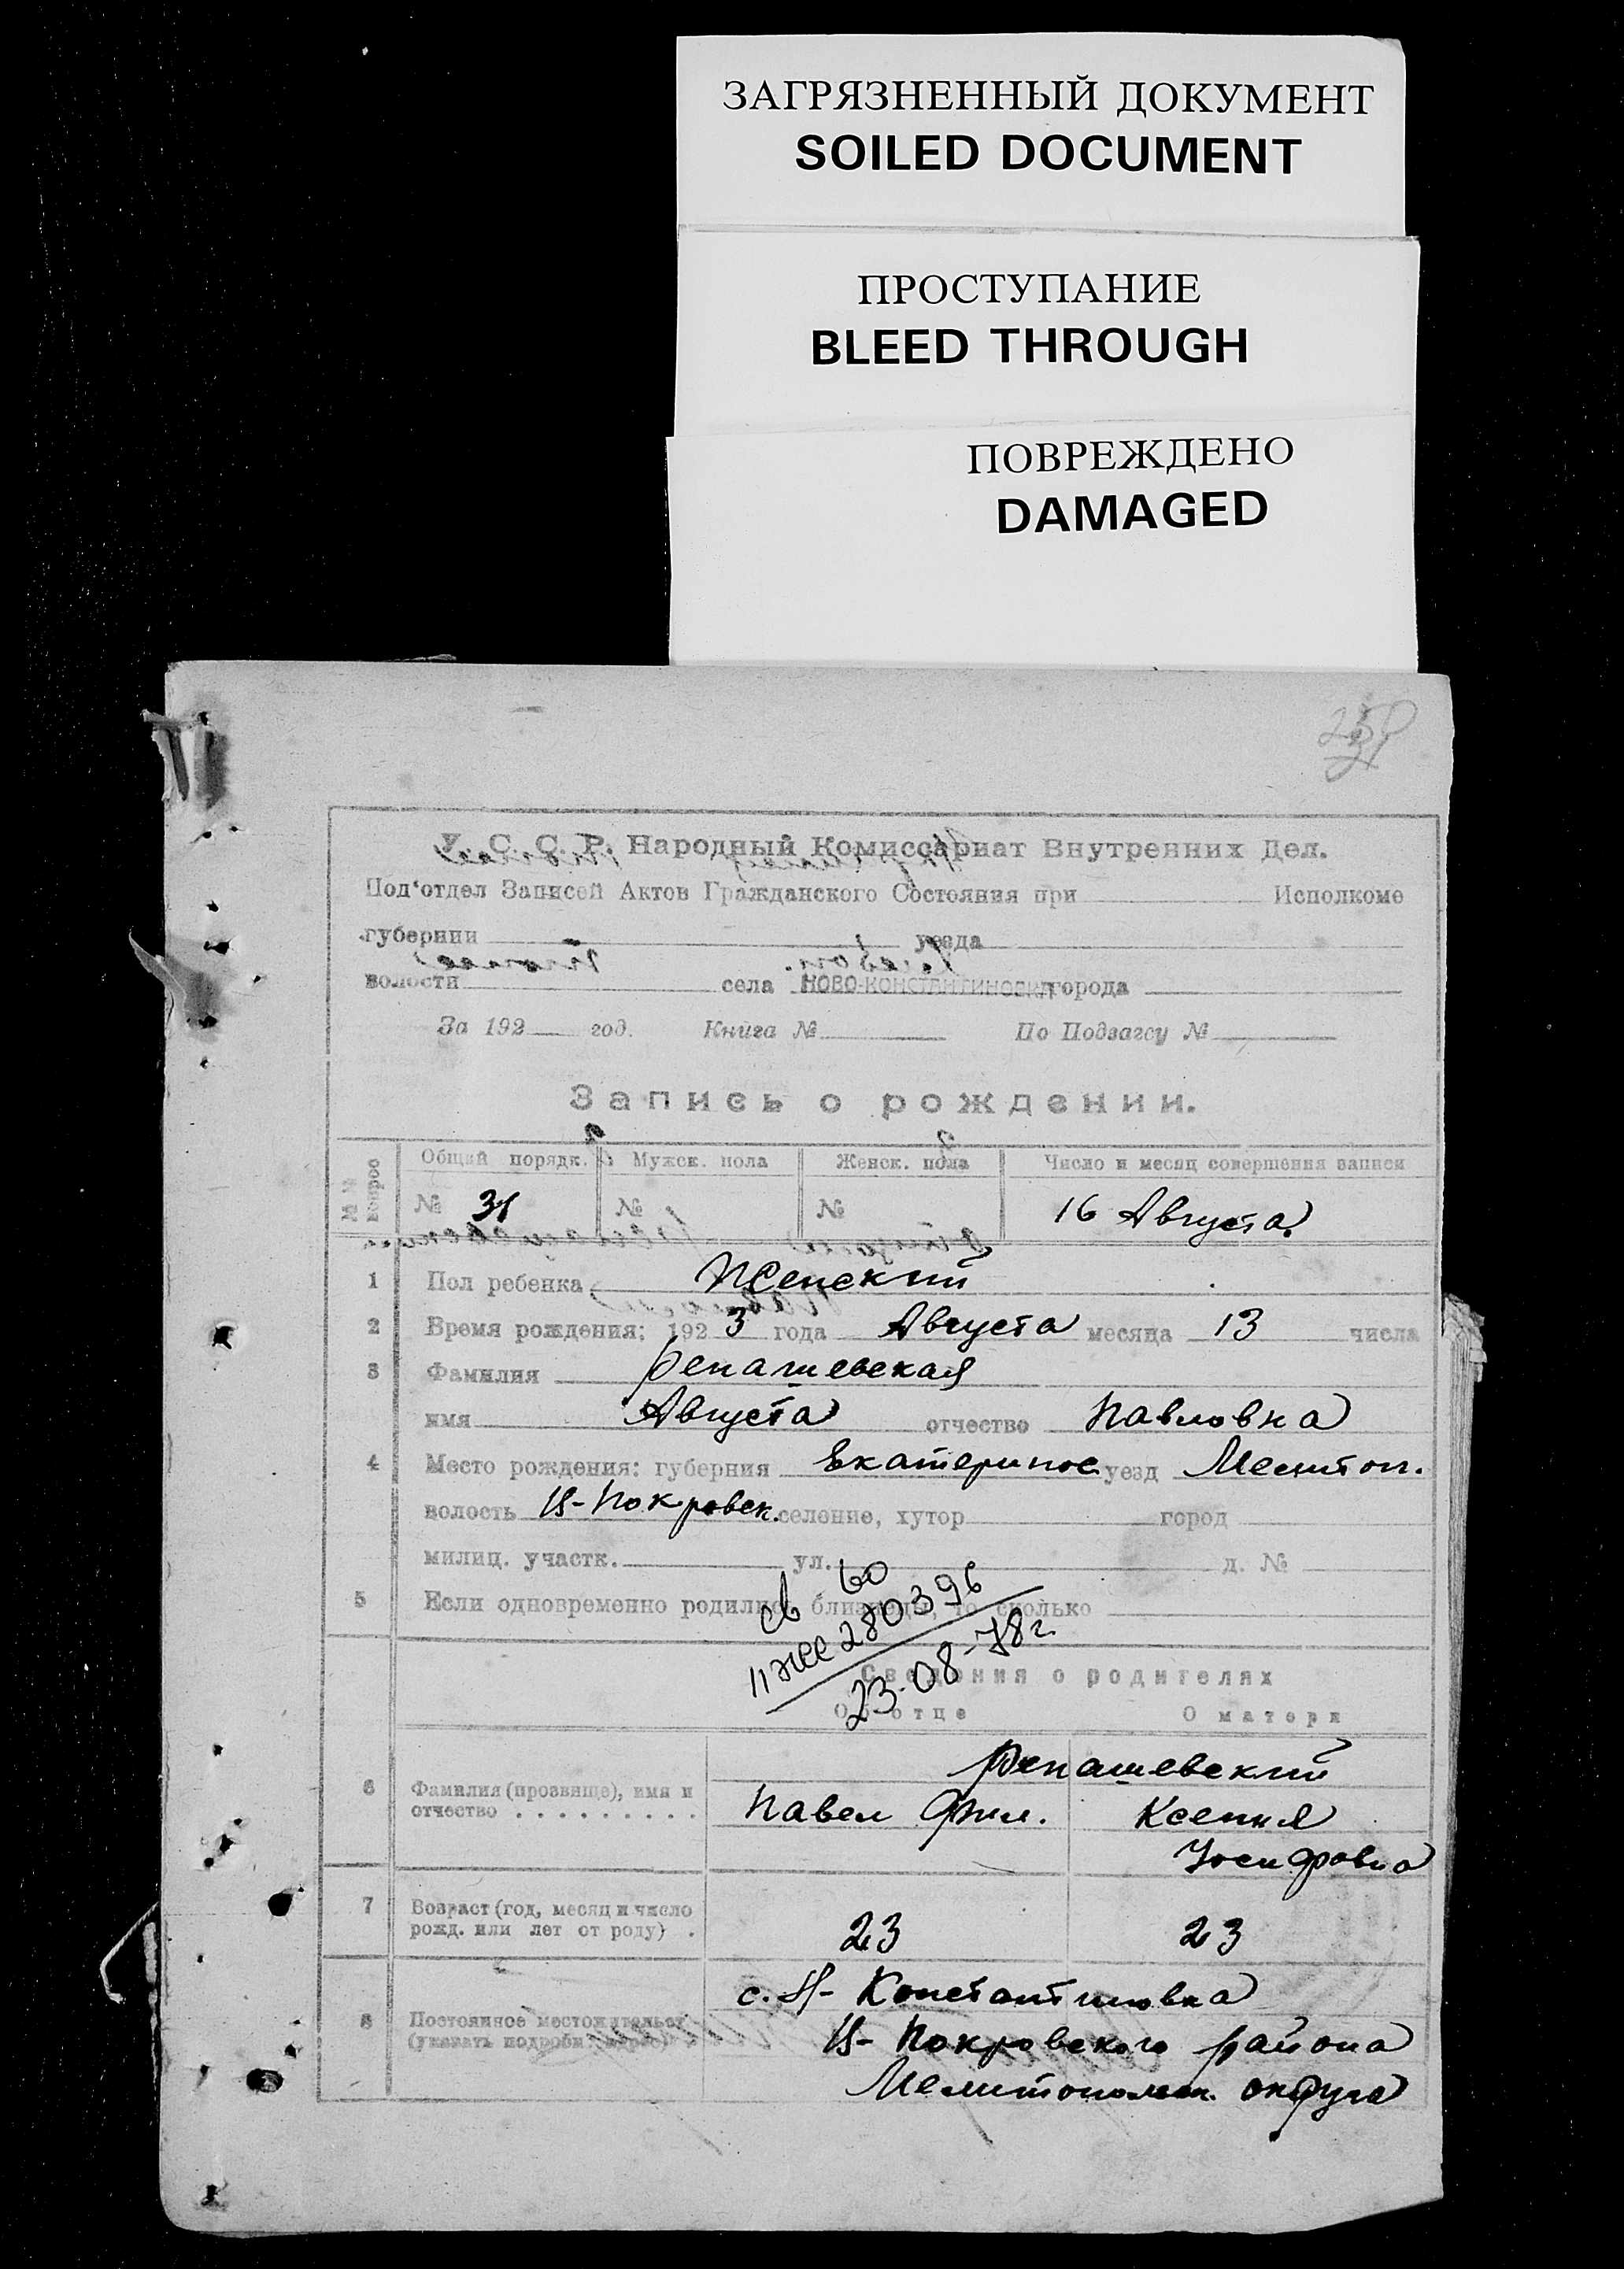 ЗАГРЯЗНЕННЫЙ ДОКУМЕНТ
SOILED DOCUMENT
ПРОСТУПАНИЕ
BLEED THROUGH
ПОВРЕЖДЕНО
DAMAGED
У. С. С. Р. Народный Комиссариат Внутренних Дел.
Под'отдел Записей Актов Гражданского Состояния при Исполкоме
губернии уезда
волости села НОВО-КОНСТАНТИНОВКА города
За 192 год. Книга № По Подзагсу №
Запись о рождении.
Общий порядк. Мужск. пола Женск. пола Число и месяц совершения записи
№ 31 № № 16 Августа
1 Пол ребенка Женский
2 Время рождения: 192 3 года Августа месяца 13 числа
3 Фамилия Репашевская
имя Августа отчество Павловна
4 Место рождения: губерния Екатеринос. уезд Мелитоп.
волость Н-Покровск. селение, хутор город
милиц. участк. ул. д. №
5 Если одновременно родились близнецы, то сколько
св 60
II ЖС 280396
23-08-78 г.
Сведения о родителях
Об отце О матери
6 Фамилия (прозвище), имя и отчество Репашевский
Павел Фил. Ксения
Иосифовна
7 Возраст (год, месяц и число
рожд. или лет от роду) 23 23
8 Постоянное местожительст.
(указать подробн. адрес) с. Н-Константиновка
Н-Покровского района
Мелитопольск. округа